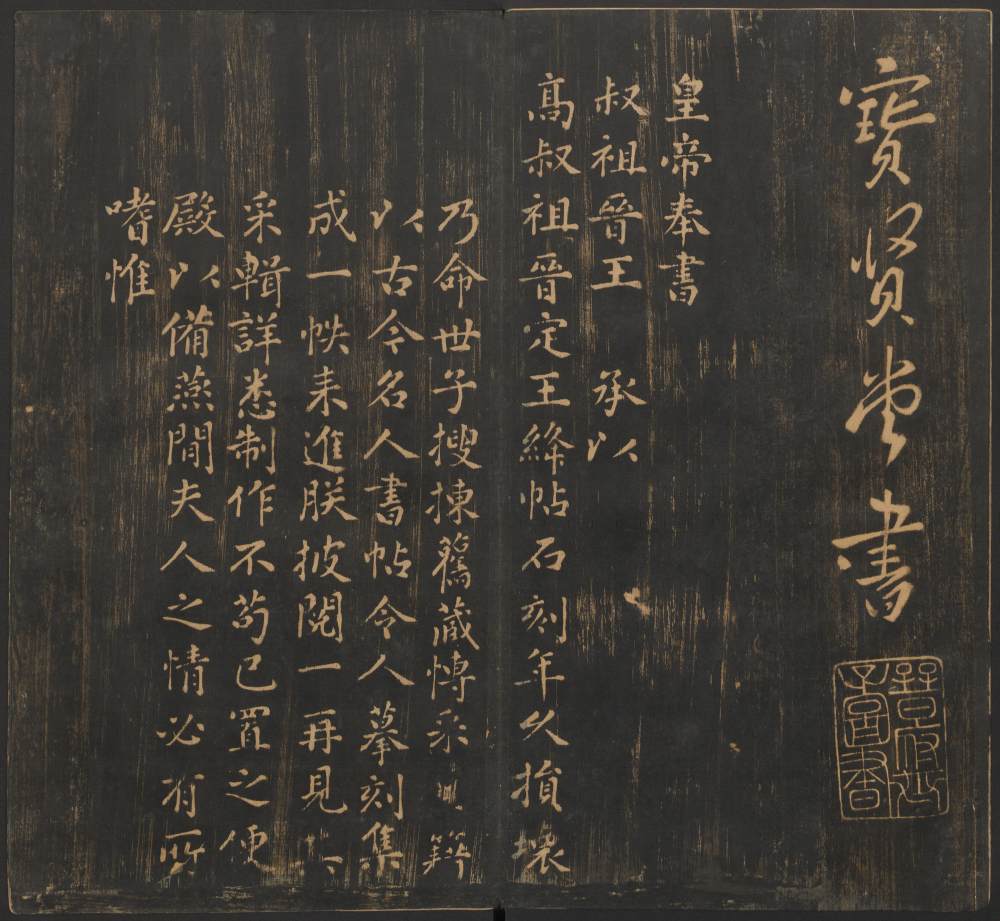 寳賢堂書
皇帝奉書
叔祖晉王　承以
髙叔祖晉定王絳帖石刻年久損壞
乃命世子搜揀舊藏愽采籍
以古今名人書帖令人摹刻集
成一帙来進朕披閱一再見
采輯詳悉制作不苟已置之便
殿以備燕閒夫人之情必有所
嗜惟